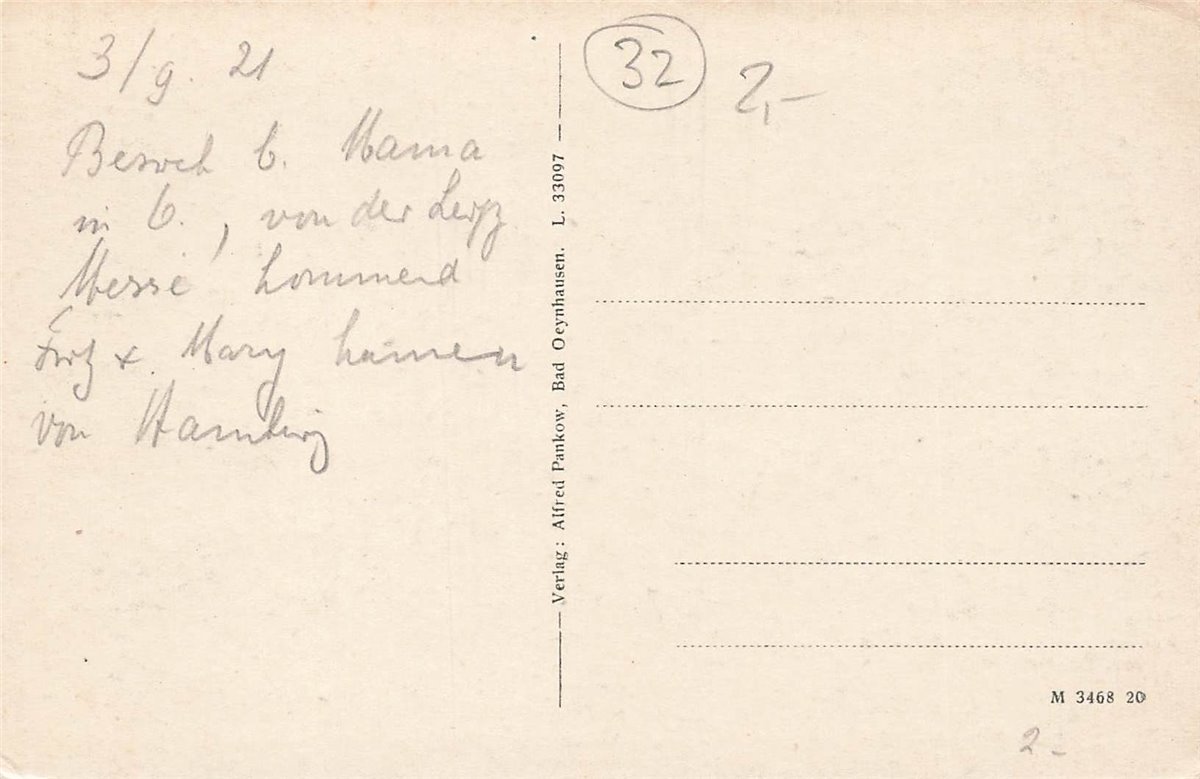 3/9. 21
Besuch b. Mama
in O., von der Leipz
Messe kommend
Fritz + Mary kamen
von Hamburg
Verlag: Alfred Pankow, Bad Oeynhausen. L. 33097
32
2,-
M 3468 20
2-